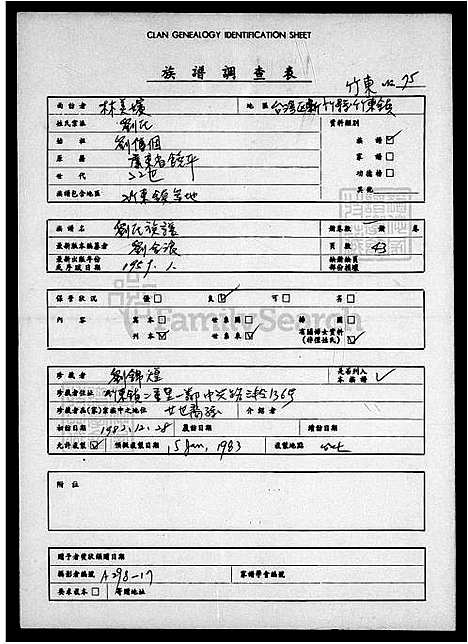 CLAN GENEALOGY IDENTIFICATION SHEET
族譜調查表
竹東 No. 75
面訪者 林美嬪 地區 台灣區新竹縣竹東鎮
姓氏宗派 劉氏 資料類別
始祖 劉傳個 族譜 ☑
原籍 廣東省饒平 家譜 □
世代 22世 功德榜 □
族譜包含地區 竹東鎮等地 其他
譜名 劉氏族譜 譜卷數 一冊 卷
最新版本編纂者 劉金浪 頁數 43
最新出版年份或序跋日期 1959. 1.
保管狀況 優 □ 良 ☑ 可 □ 劣 □
內容 寫本 世系圖 插圖 □
刊本 世系表 有關婦女資料(待僅姓氏)
FamilySearch
珍藏者 劉錦煌 是否列入本族譜 ✓
珍藏者住址 竹東鎮二重里一鄰中興路三段136號
珍藏者在(家)宗族中之地位 廿世裔孫 介紹者
初訪日期 1982.12.28 覆訪日期 續訪日期
允許複製 ☑ 預擬複製日期 15 Jan, 1983 複製地點
附註
贈予者發狀頒贈日期
攝影者編號 A298-17 家譜學會編號
要求我本 □ 寄贈地址